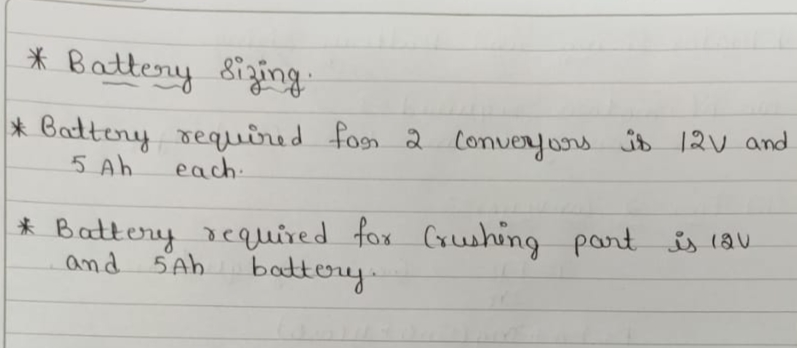 * Battery Sizing.
* Battery required for 2 Conveyors is 12V and
5 Ah each.
* Battery required for Crushing part is 12V
and 5Ah battery.